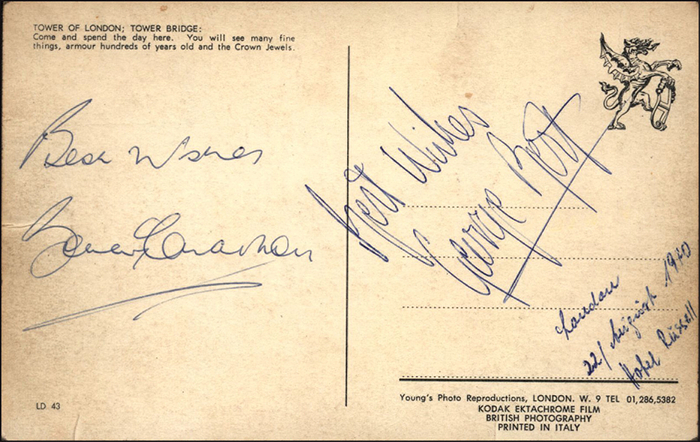 TOWER OF LONDON; TOWER BRIDGE:
Come and spend the day here. You will see many fine
things, armour hundreds of years old and the Crown Jewels.
Best Wishes
Best Wishes
George Best
London
22/ August 1970
Hotel Russell
LD 43
Young's Photo Reproductions, LONDON. W. 9 TEL 01,286,5382
KODAK EKTACHROME FILM
BRITISH PHOTOGRAPHY
PRINTED IN ITALY